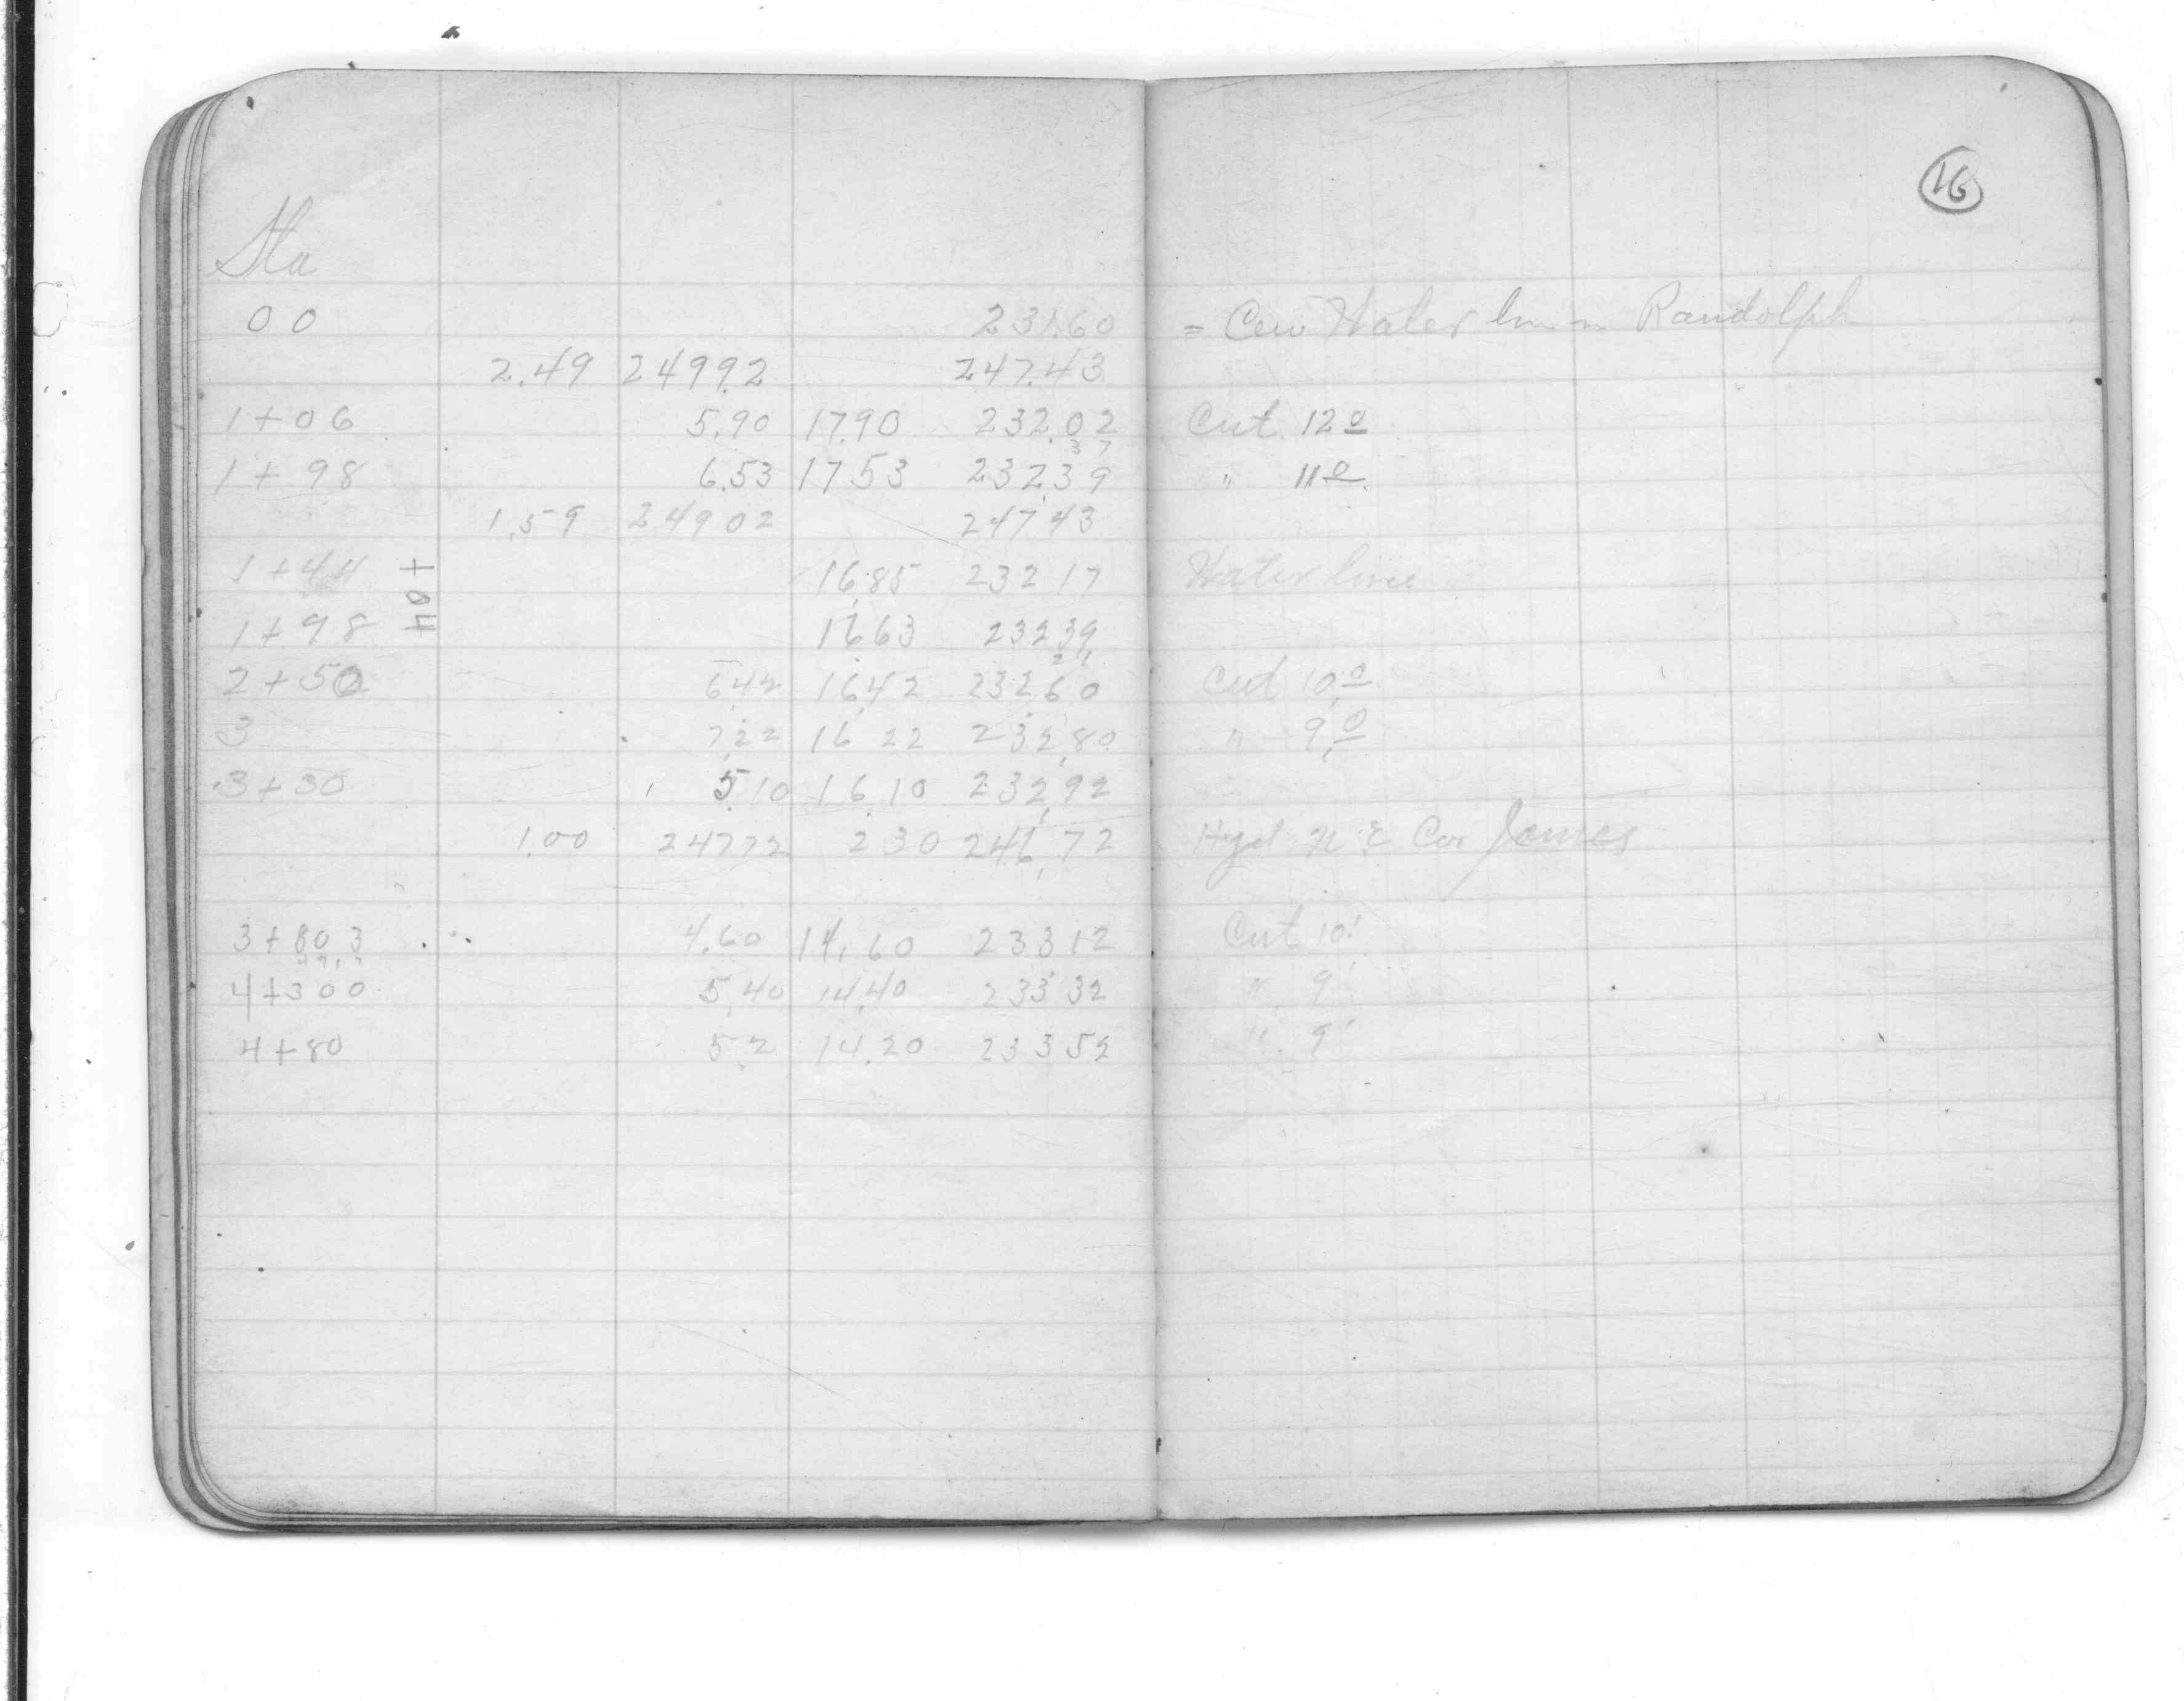 16
Sta
00 231.60 = Cen Water line in Randolph
2.49 249.92 247.43
1+06 5.90 17.90 232.02 Cut 12 0
37
1+98 6.53 17.53 232.39 " 11 0
1.59 249.02 247.43
1+44 16.85 232.17 Water line
+04
1+98 16.63 232.39
21
2+50 6.42 16.42 232.60 Cut 10.0
3 7.22 16.22 232.80 " 9.0
3+30 5.10 16.10 232.92
1.00 247.72 2.30 246.72 Hyd N.E Cor James
3+80 3 4.60 14.60 233.12 Cut 10'
4+300 5.40 14.40 233.32 " 9'
4+80 5.2 14.20 233.52 " 9'